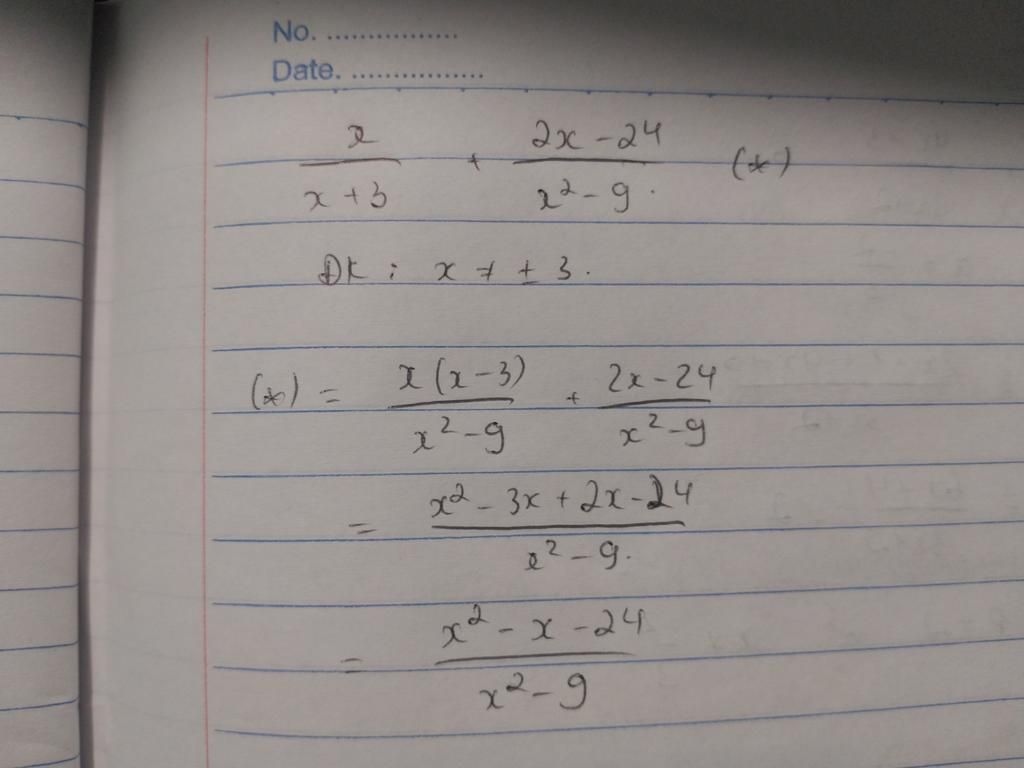 No. ................
Date. ................
x/(x+3) + (2x-24)/(x²-9) (*)
ĐK : x ≠ ± 3.
(*) = x(x-3)/(x²-9) + (2x-24)/(x²-9)
= (x²-3x+2x-24)/(x²-9)
= (x²-x-24)/(x²-9)